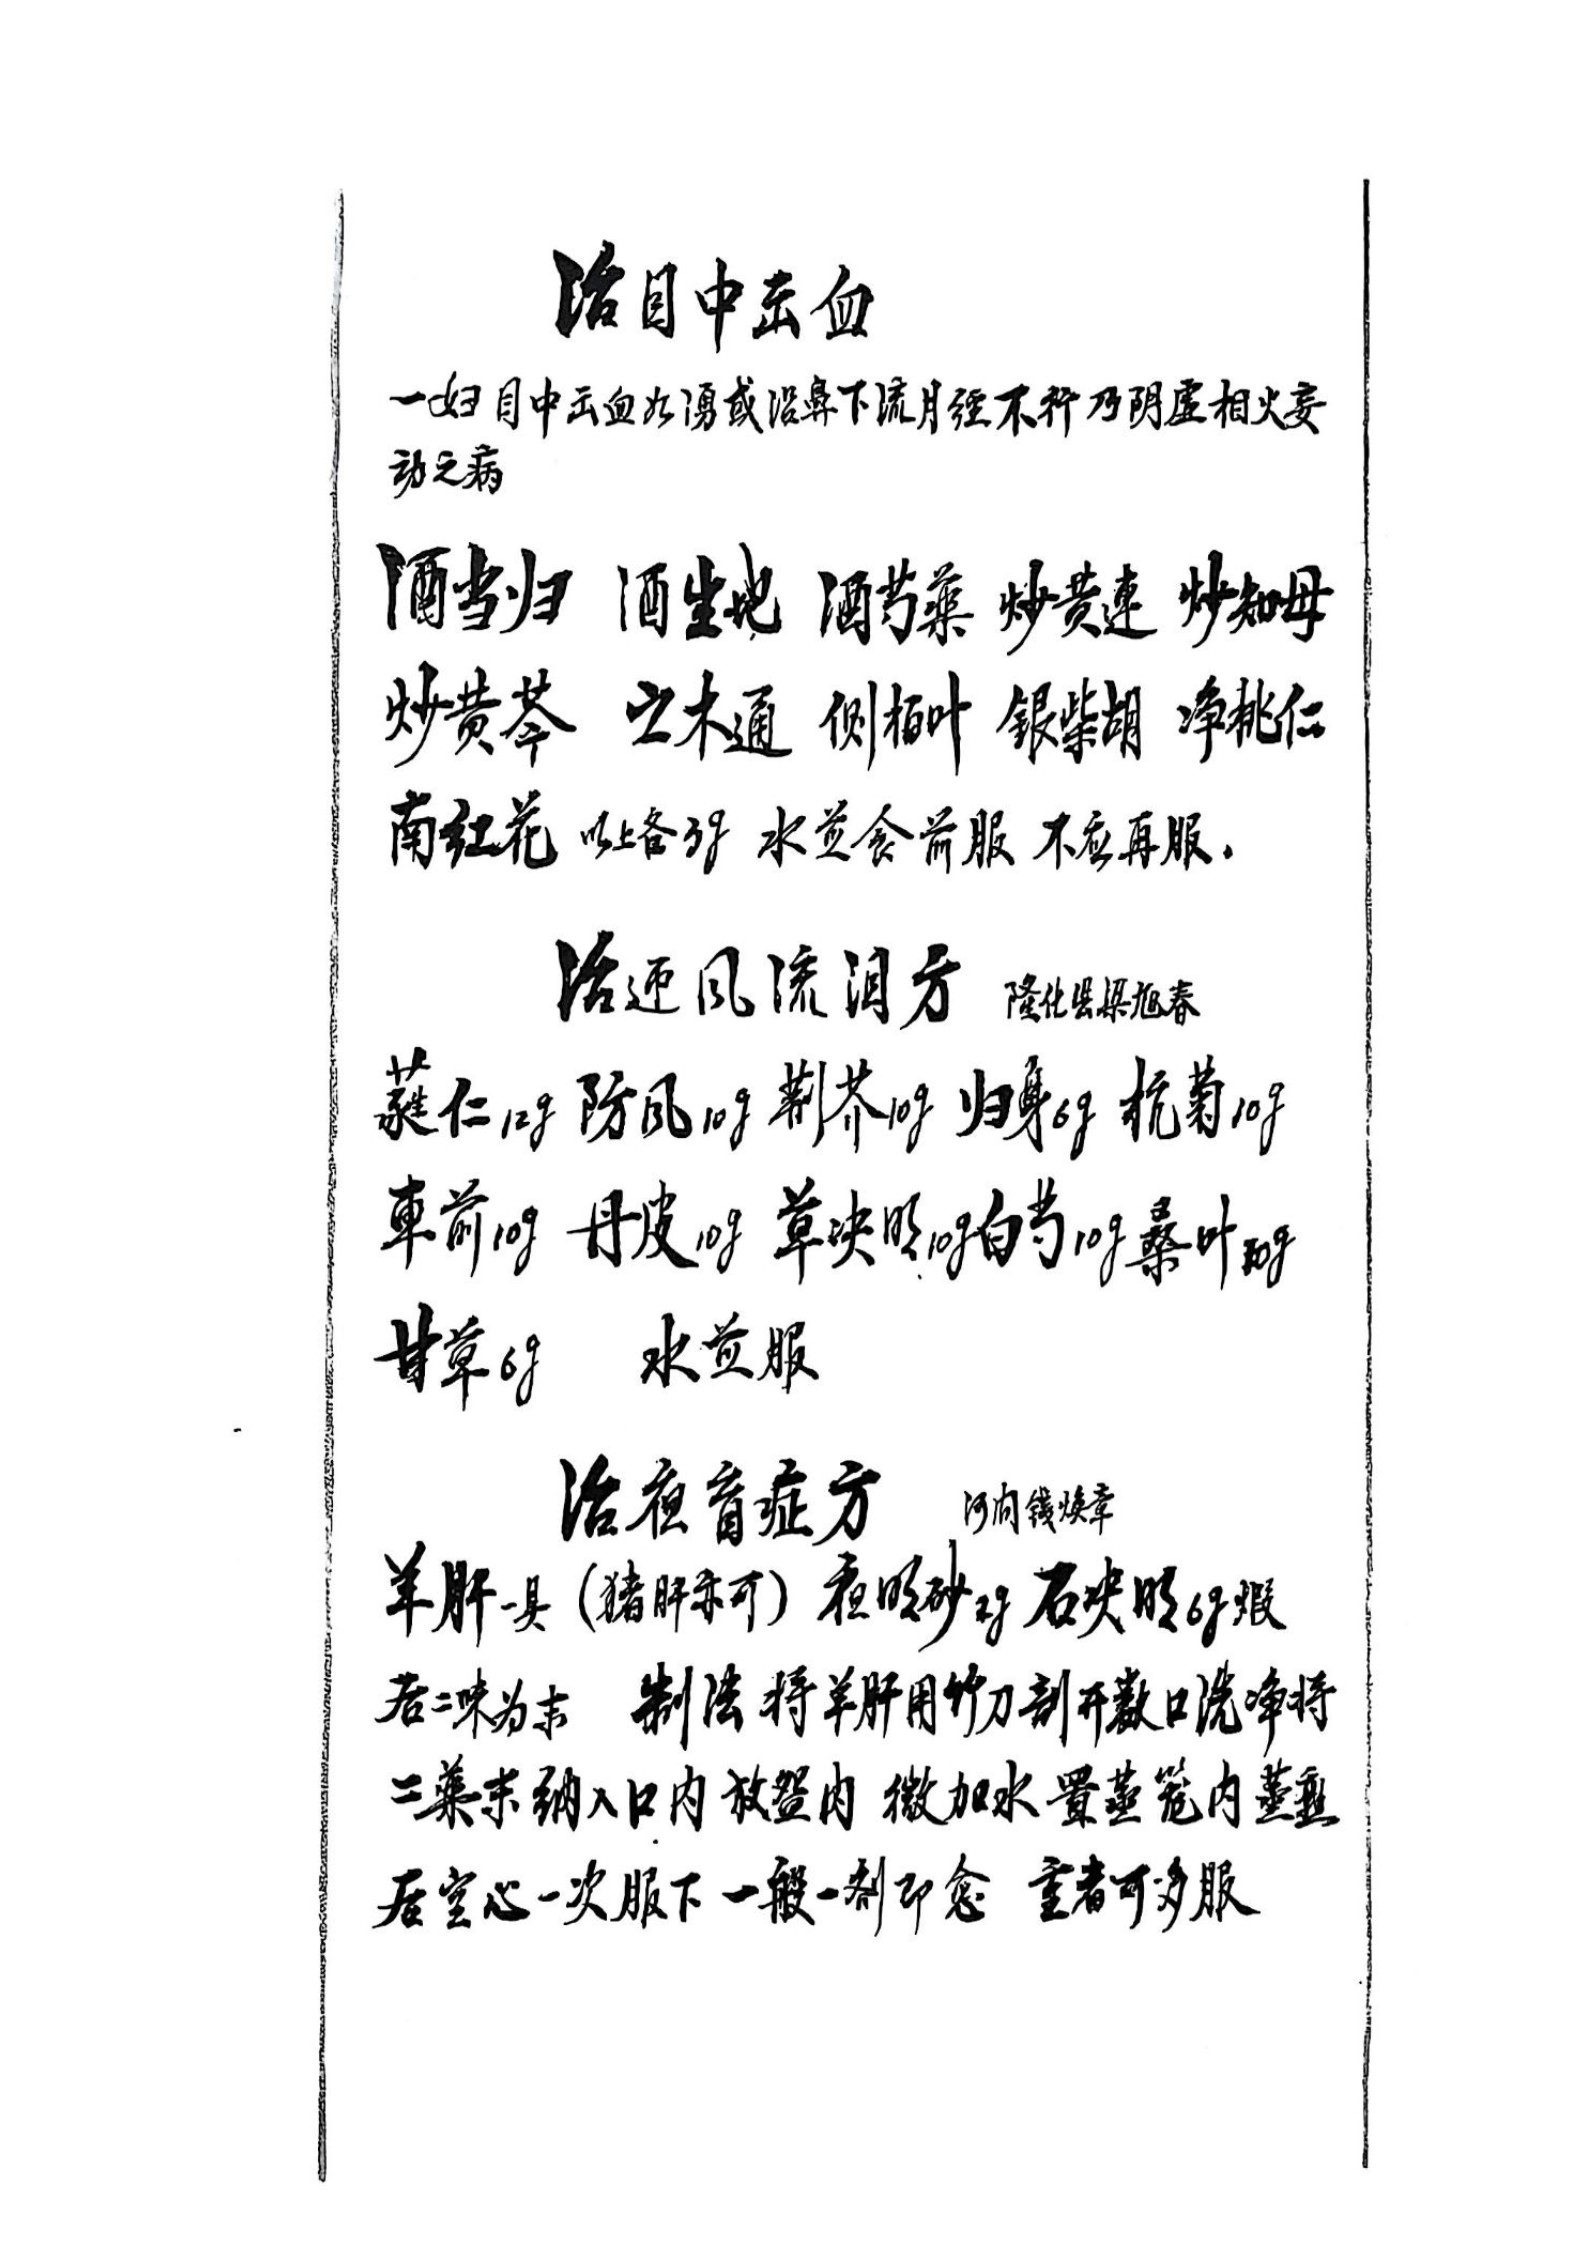 治目中出血
一妇目中出血如湧或沿鼻下流月经不行乃阴虚相火妄
动之病
酒当归 酒生地 酒芍薬 炒黄連 炒知母
炒黄芩 木通 侧柏叶 銀柴胡 净桃仁
南红花 以上各3g 水煎食前服 不应再服.
治迎风流泪方 隆化县梁旭春
蕤仁12g 防风10g 荆芥10g 归身6g 杭菊10g
車前10g 丹皮10g 草决明10g 白芍10g 桑叶30g
甘草6g 水煎服
治夜盲症方 河间錢焕章
羊肝一具（猪肝亦可）夜明砂3g 石决明6g煅
后二味为末 制法 将羊肝用竹刀剖开数口洗净将
二薬末納入口内 放盌内 微加水 置蒸笼内蒸熟
后空心一次服下 一般一剂即愈 重者可多服